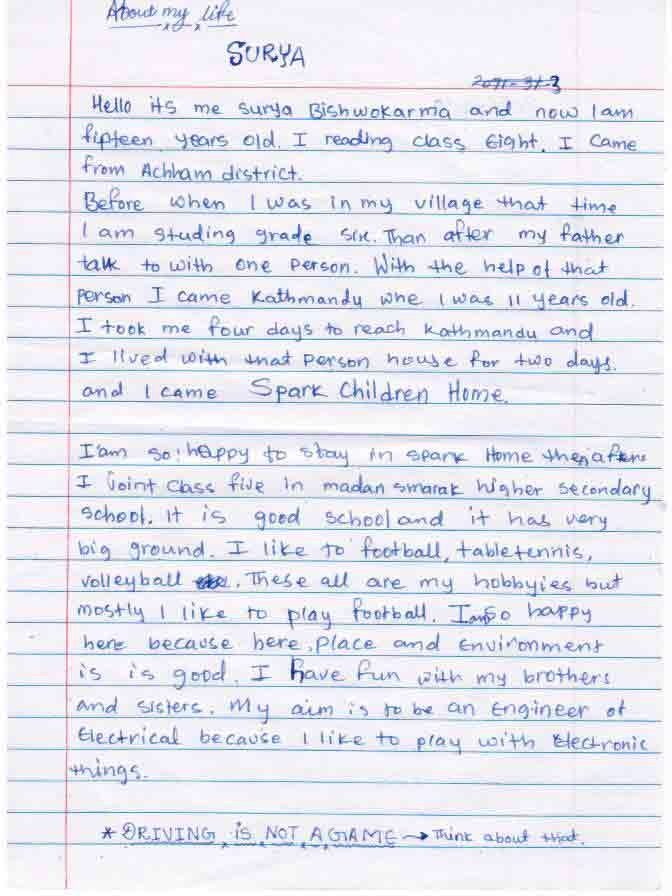 About my life
SURYA
2071-3/-3
Hello its me surya Bishwokarma and now I am
fifteen years old. I reading class Eight. I came
from Achham district.
Before when I was in my village that time
I am studing grade six. Than after my father
talk to with one person. With the help of that
person I came Kathmandu whe I was 11 years old.
I took me four days to reach Kathmandu and
I lived with that person house for two days.
and I came Spark Children Home.
I'am so happy to stay in spark Home then after
I joint class five in madan smarak higher secondary
school. It is good school and it has very
big ground. I like to football, tabletennis,
volleyball. These all are my hobbyies but
mostly I like to play football. I am so happy
here because here, place and Environment
is is good. I have fun with my brothers
and sisters. My aim is to be an Engineer of
Electrical because I like to play with Electronic
things.
* DRIVING IS NOT A GAME → Think about that.